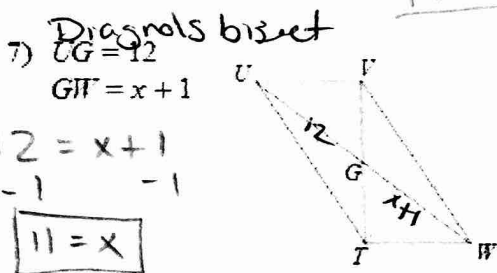 Diagnols bisect
7) UG = 12
GW = x + 1
2 = x + 1
- 1 - 1
11 = x
U
V
12
G
x+1
T
W